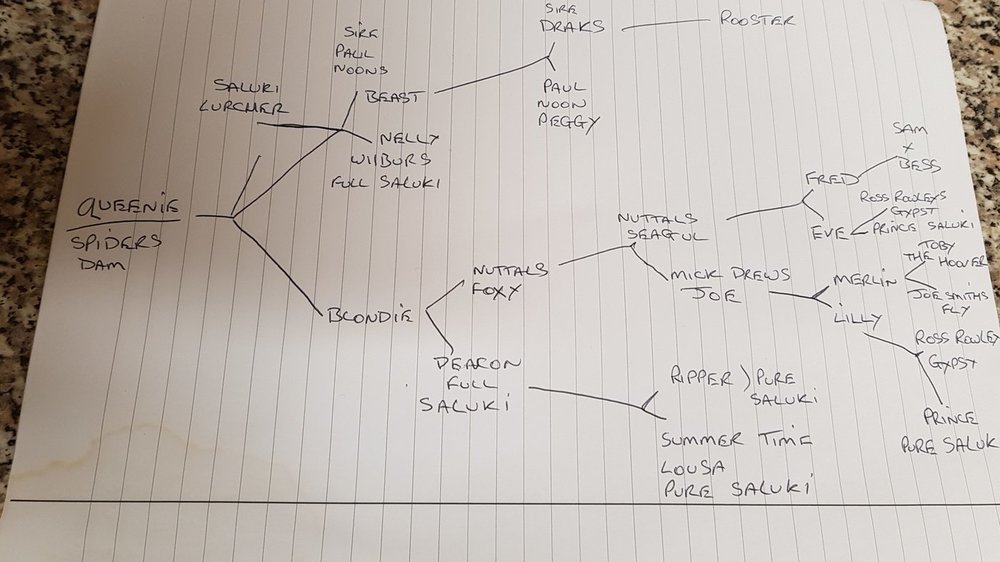 SIRE
DRAKS
ROOSTER
SIRE
PAUL
NOONS
BEAST
PAUL
NOON
PEGGY
SALUKI
LURCHER
NELLY
WILBURS
FULL SALUKI
SAM
X
BESS
FRED
ROSS ROWLEYS
GYPSY
PRINCE SALUKI
EVE
QUEENIE
SPIDERS
DAM
NUTTALS
SEAGUL
TOBY
THE HOOVER
MERLIN
JOE SMITHS
FLY
NUTTALS
FOXY
MICK DREWS
JOE
LILLY
BLONDIE
ROSS ROWLEY
GYPSY
DEACON
FULL
SALUKI
RIPPER ) PURE
SALUKI
PRINCE
PURE SALUK
SUMMER TIME
LOUSA
PURE SALUKI